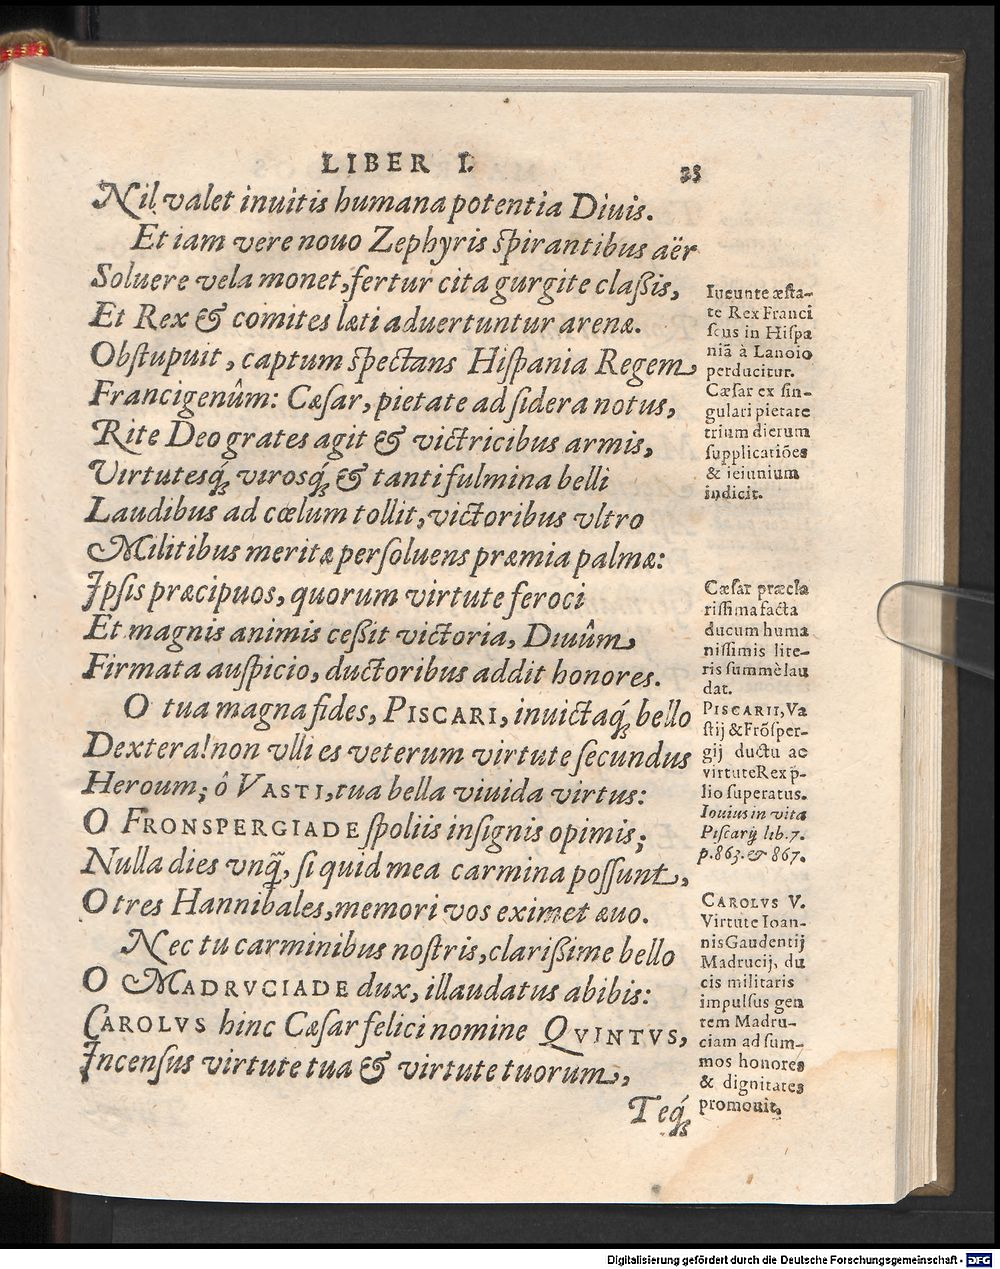 LIBER I.
23
Nil valet inuitis humana potentia Diuis.
Et iam vere nouo Zephyris spirantibus aër
Soluere vela monet, fertur cita gurgite claßis,
Et Rex & comites læti aduertuntur arenæ.
Obstupuit, captum spectans Hispania Regem
Francigenûm: Cæsar, pietate ad sidera notus,
Rite Deo grates agit & victricibus armis,
Virtutesq́ꝫ virosq́ꝫ & tanti fulmina belli
Laudibus ad cœlum tollit, victoribus vltro
Militibus meritæ persoluens præmia palmæ:
Ipsis præcipuos, quorum virtute feroci
Et magnis animis ceßit victoria, Diuûm
Firmata auspicio, ductoribus addit honores.
O tua magna fides, PISCARI, inuictaq́ꝫ bello
Dextera! non vlli es veterum virtute secundus
Heroum; ô VASTI, tua bella viuida virtus:
O FRONSPERGIADE spoliis insignis opimis;
Nulla dies vnq̃, si quid mea carmina possunt,
O tres Hannibales, memori vos eximet æuo.
Nec tu carminibus nostris, clarißime bello
O MADRVCIADE dux, illaudatus abibis:
CAROLVS hinc Cæsar felici nomine QVINTVS,
Incensus virtute tua & virtute tuorum,
Teq́ꝫ
Iueunte æsta-
te Rex Franci
scus in Hispa
niā à Lanoio
perducitur.
Cæsar ex sin-
gulari pietate
trium dierum
supplicatiões
& ieiunium
indicit.
Cæsar præcla
rissima facta
ducum huma
nissimis lite-
ris summè lau
dat.
PISCARII, Va
stij & Frõsper-
gij ductu ac
virtute Rex p̄-
lio superatus.
Iouius in vita
Piscarij lib. 7.
p. 863. & 867.
CAROLVS V.
Virtute Ioan-
nis Gaudentij
Madrucij, du
cis militaris
impulsus gen
tem Madru-
ciam ad sum-
mos honores
& dignitates
promouit.
Digitalisierung gefördert durch die Deutsche Forschungsgemeinschaft - DFG